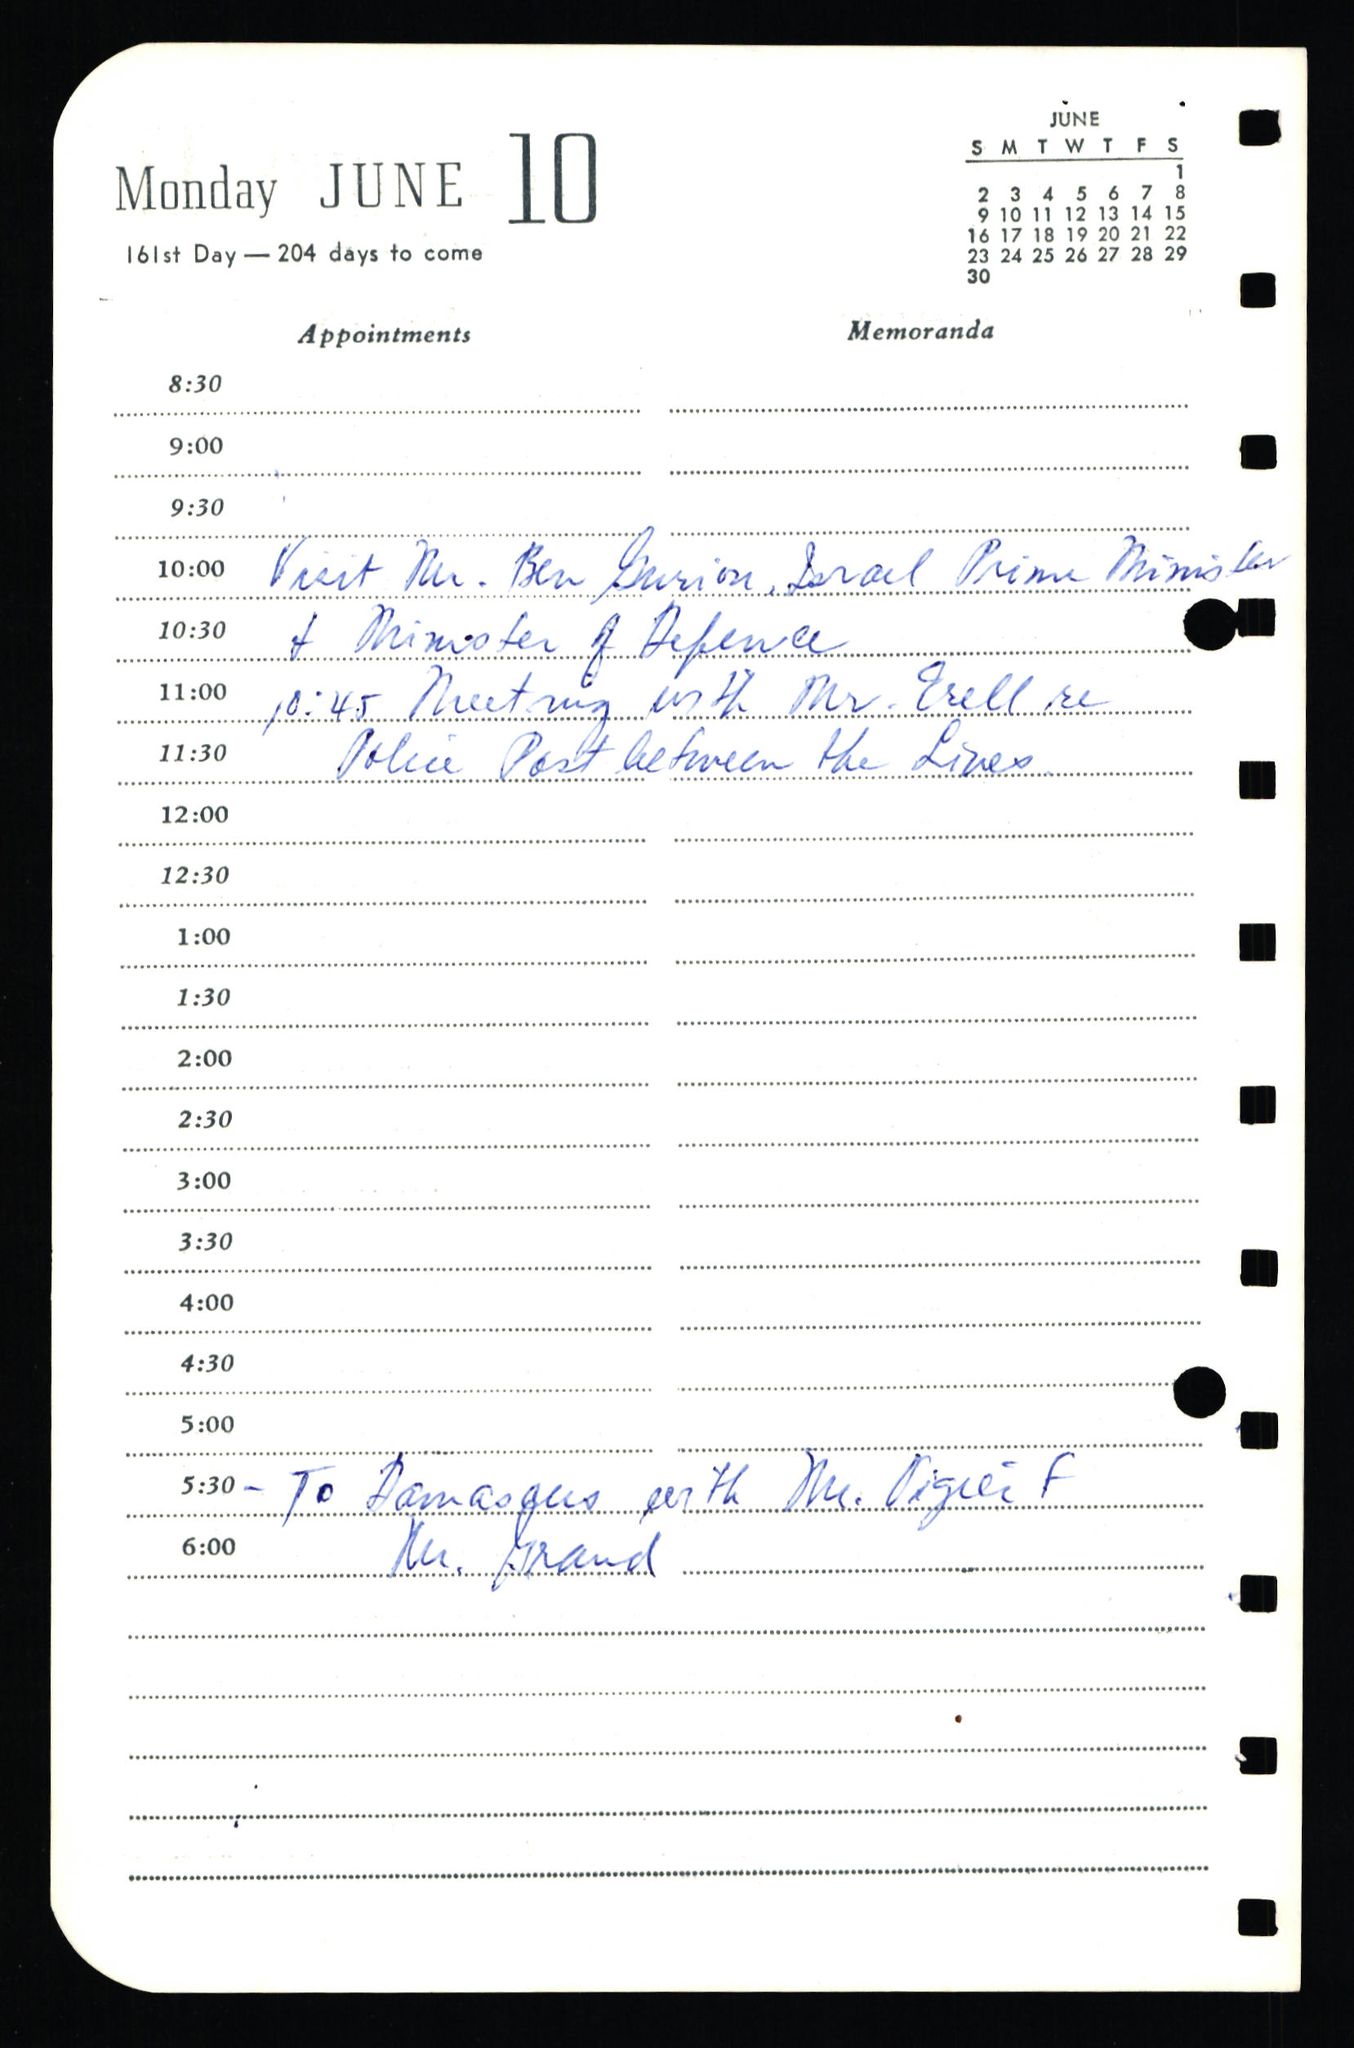 Monday JUNE 10
161st Day — 204 days to come
JUNE
S M T W T F S
1
2 3 4 5 6 7 8
9 10 11 12 13 14 15
16 17 18 19 20 21 22
23 24 25 26 27 28 29
30
Appointments
Memoranda
8:30
9:00
9:30
10:00 Visit Mr. Ben Gurion, Israel Prime Minister
10:30 & Minister of Defence
11:00 10:45 Meeting with Mr. Erell re
11:30 Police Post between the Lines.
12:00
12:30
1:00
1:30
2:00
2:30
3:00
3:30
4:00
4:30
5:00
5:30 - To Damascus with Mr. Vigier &
6:00 Mr. Grand